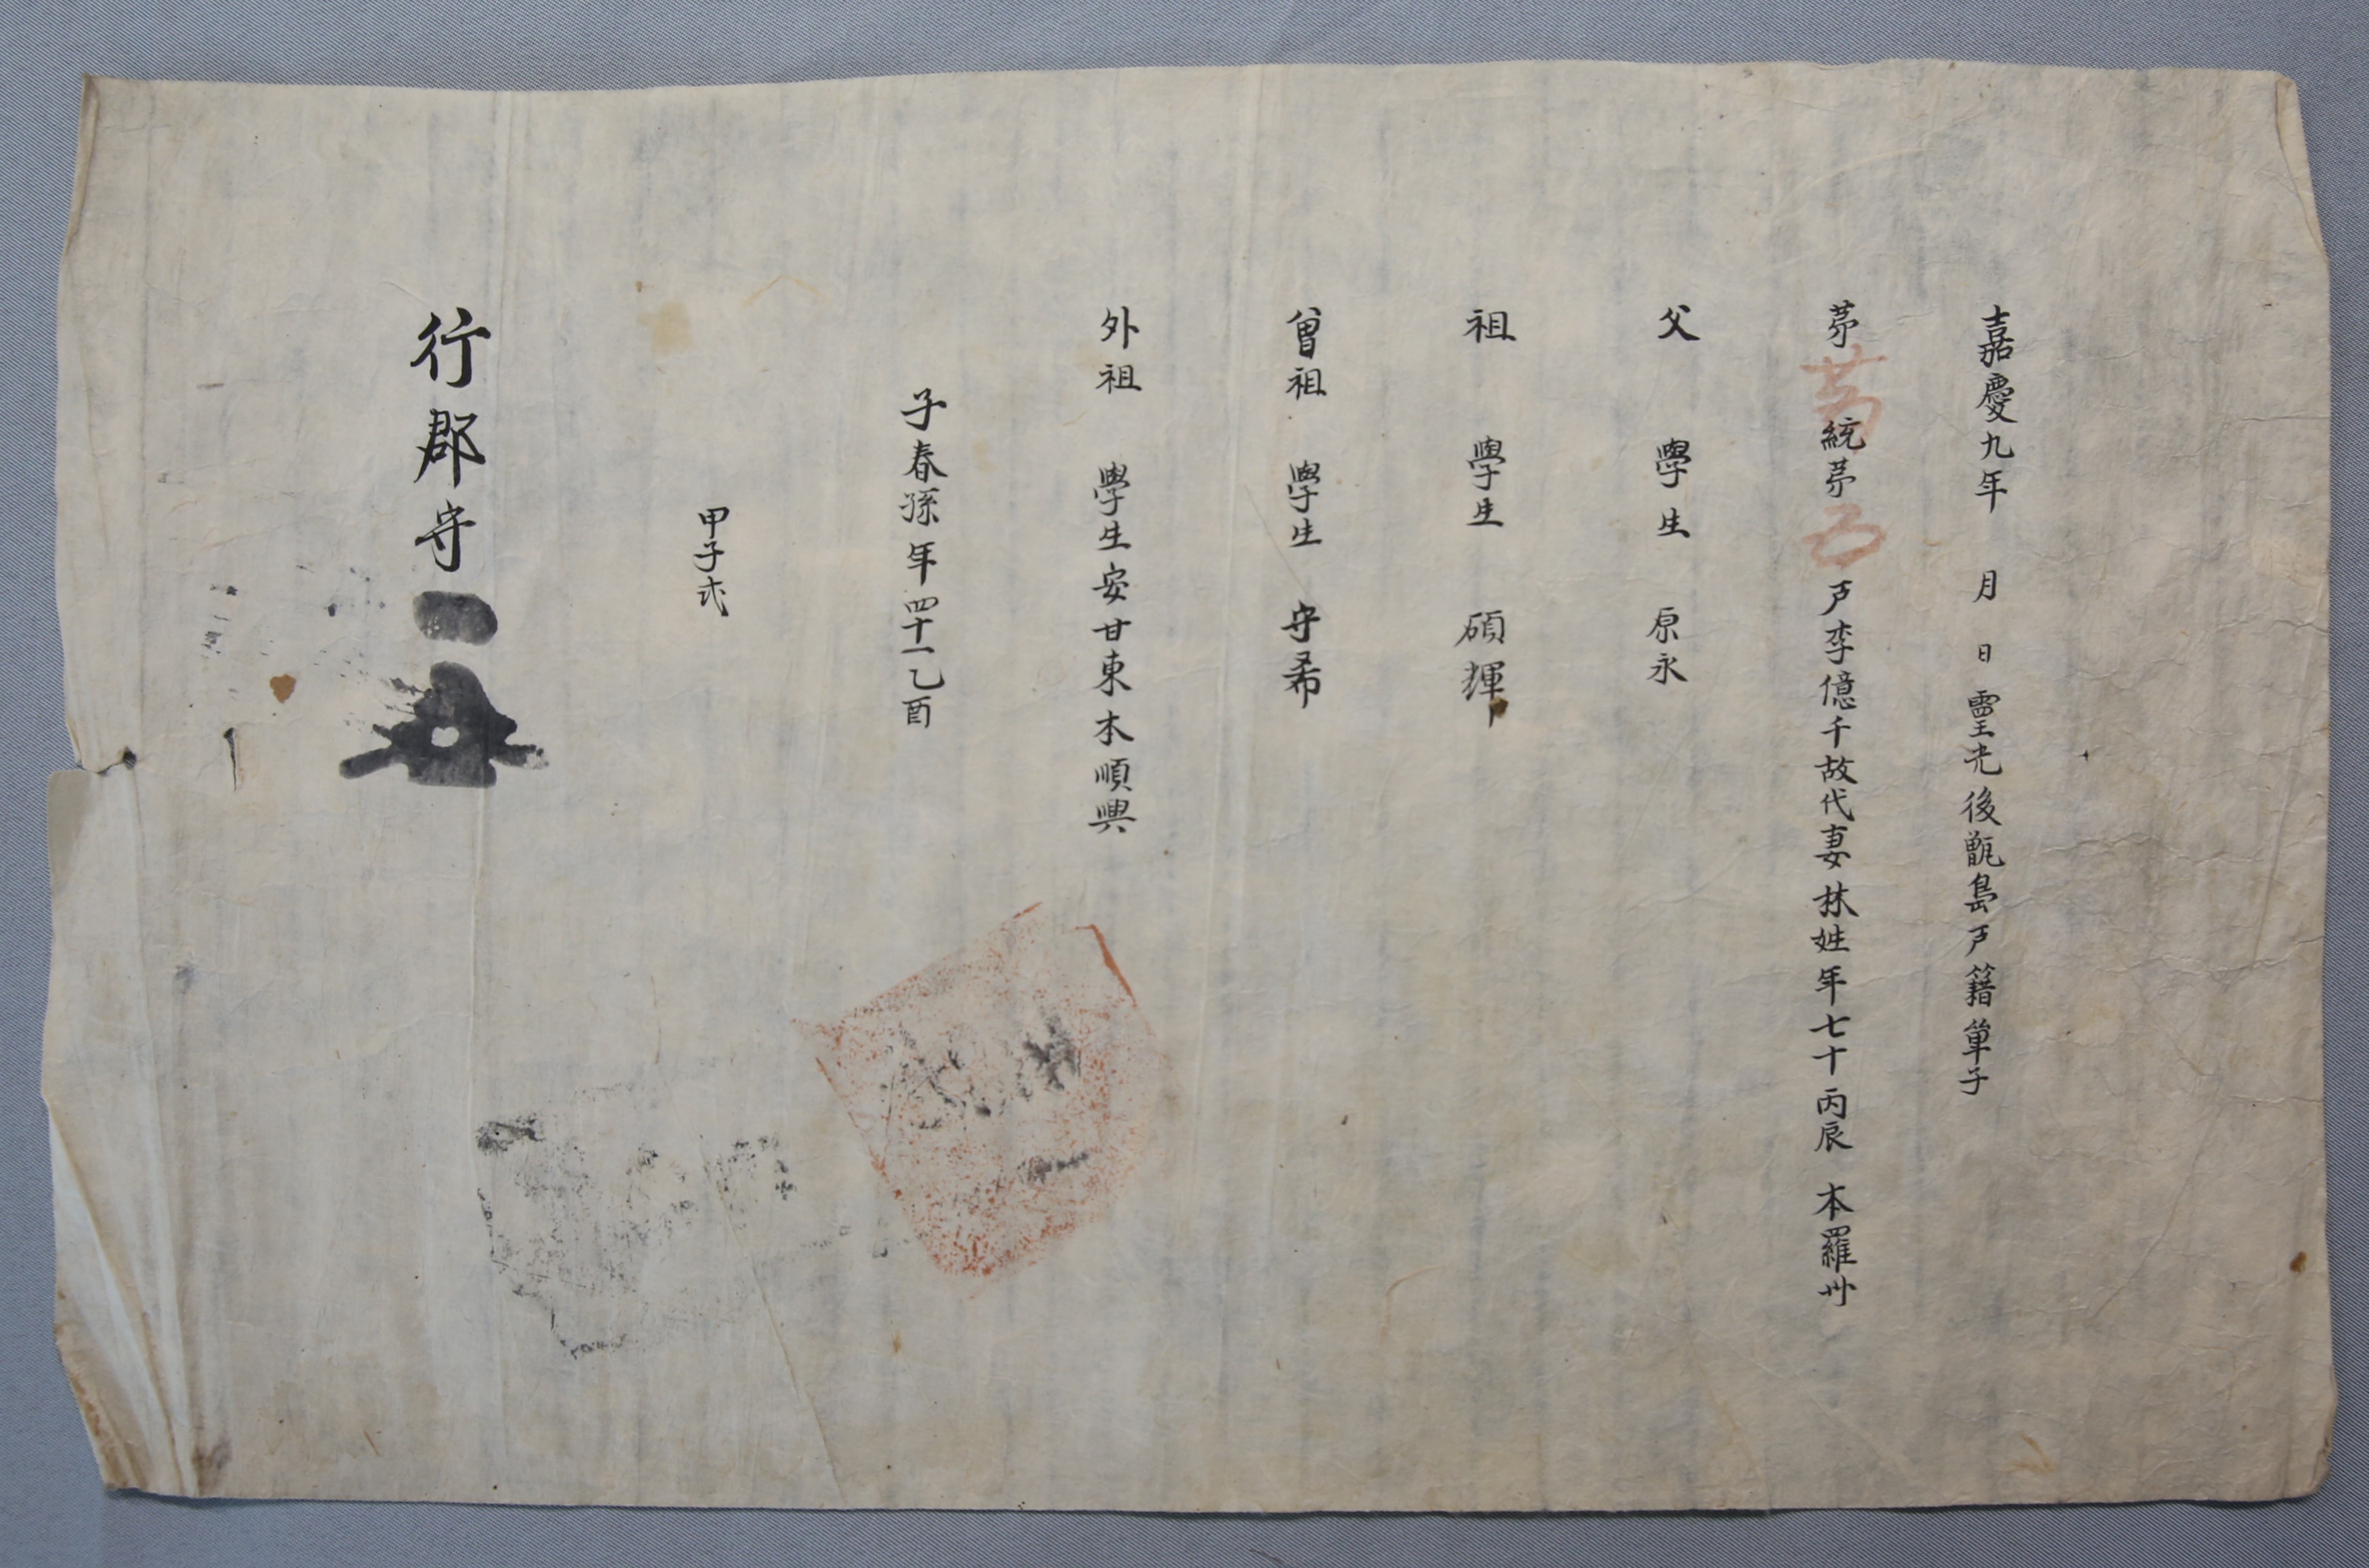 嘉慶九年 月 日靈光後甑島戶籍單子
苐 統苐五戶李億千故代妻林姓年七十丙辰 本羅州
父 學生 原永
祖 學生 碩輝
曾祖 學生 守希
外祖 學生安甘東本順興
子春孫年四十一乙酉
甲子式
行郡守